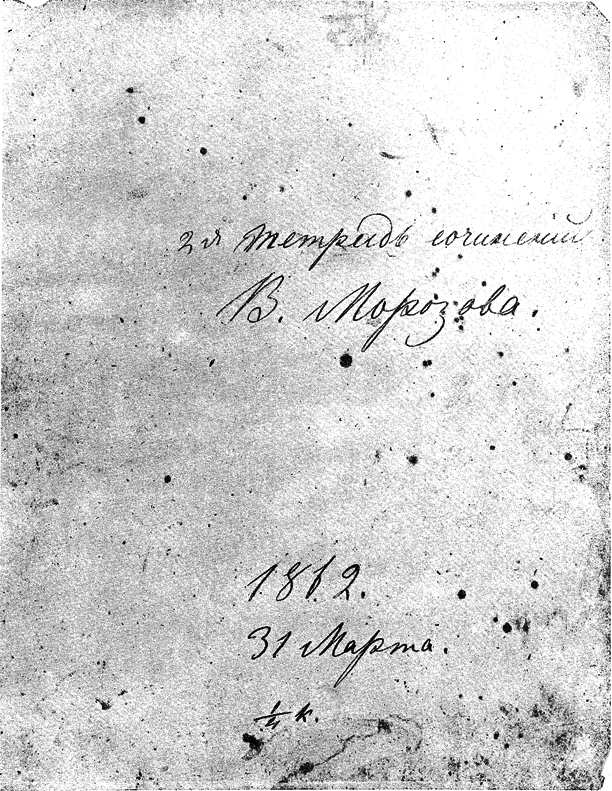 2я тетрадь сочинений
В. Морозова.
1862.
31 Марта.
1/4 к.